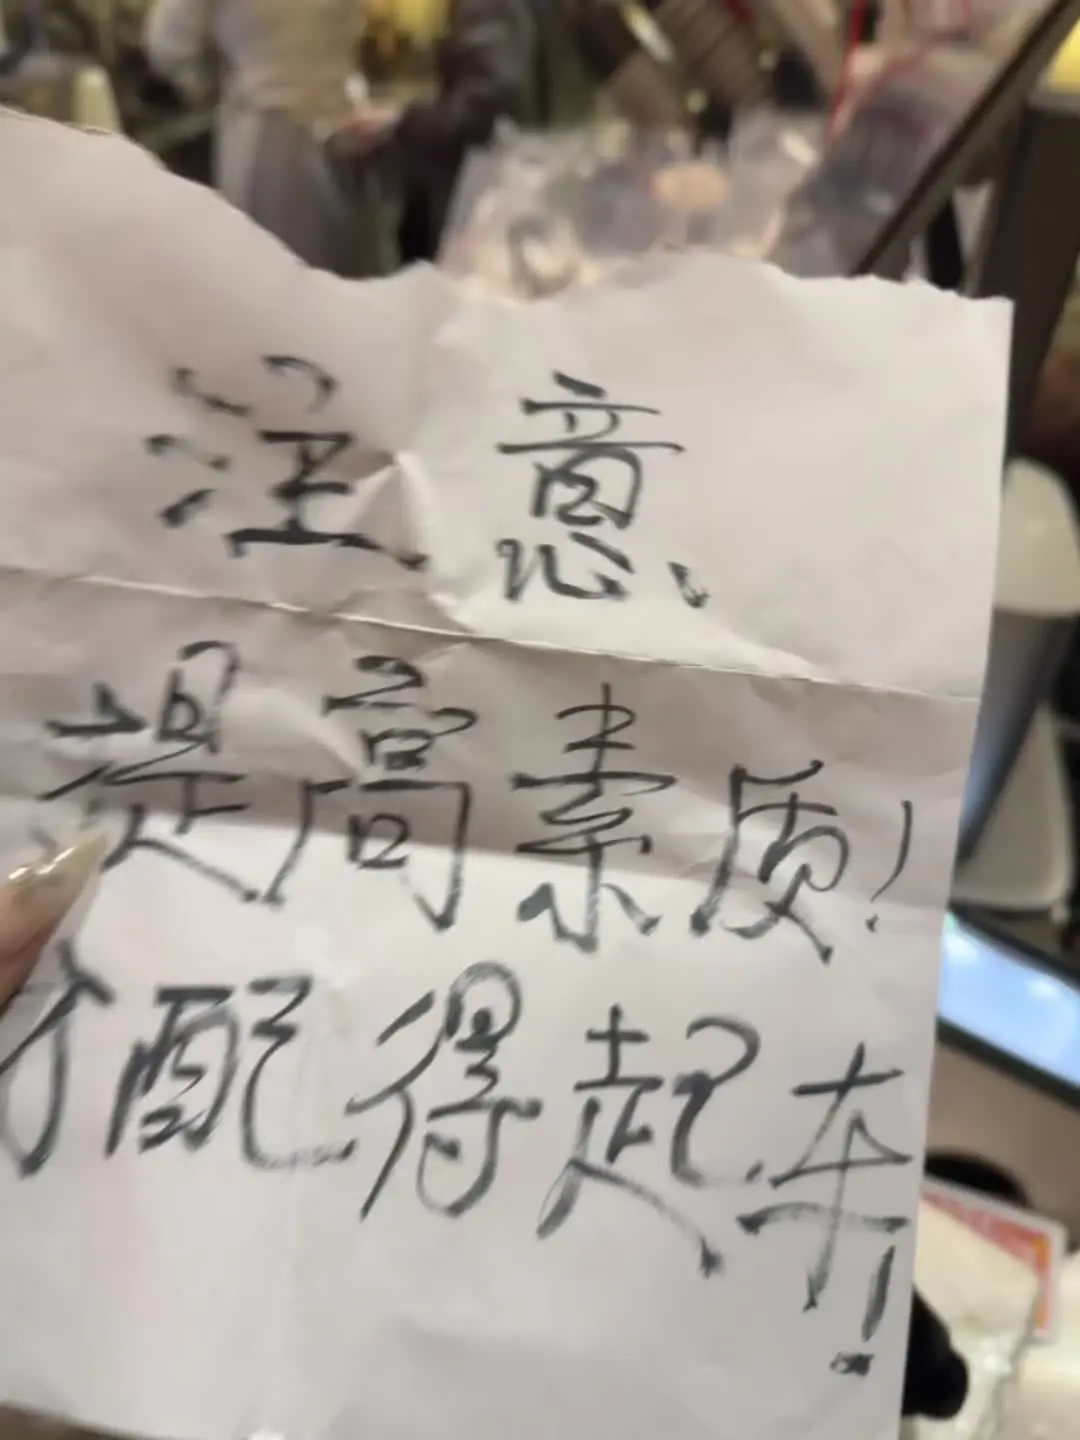 注意、
提高素质!
才配得起车!